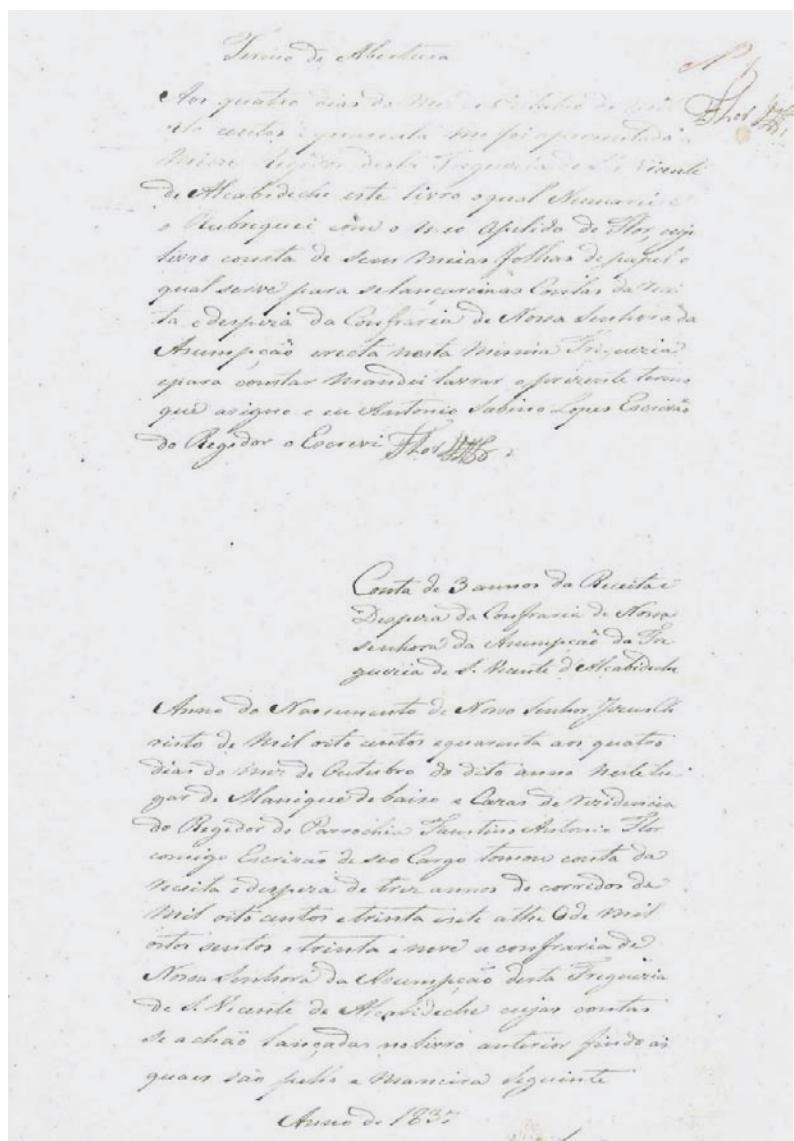 Termo de Abertura
Nº 1
Flor
Aos quatro dias do mez de Outubro de mil
oito centos e quarenta me foi aprezentado a
Regedor desta Freguezia de S. Vicente
de Alcabideche este livro o qual Numarei
e Rubriquei com o meo Apelido de Flor, cujo
livro consta de meias folhas de papel o
qual serve para se lancarem as Contas da recei
ta e despeza da Confraria de Nossa Senhora da
Asumpção erecta nesta mesma Freguezia
e para constar mandei lavrar o prezente termo
que asigno e eu Antonio Sabino Lopes Escrivão
do Regedor o Escrevi Flor
Conta de 3 annos da Receita e
Despeza da Confraria de Nossa
senhora da Asumpção da Fre
guezia de S. Vicente d'Alcabideche
Anno do Nascimento de Nosso Senhor Jezus Ch
risto de Mil oito centos e quarenta aos quatro
dias do mez de Outubro do dito anno neste lu
gar de Manique de baixo e Cazas de rezidencia
do Regedor de Parrochia Faustino Antonio Flor
comigo Escrivão de seo Cargo tomou conta da
receita e despeza de trez annos de corridos de
Mil oito centos e trinta e sete athe o de mil
oitos sentos e trinta e nove a confraria de
Nossa Senhora da Asumpção desta Freguezia
de S. Vicente de Alcabideche cujas contas
se achão lançadas no livro anterior findo as
quaes são pella a Maneira seguinte
Anno de 1837